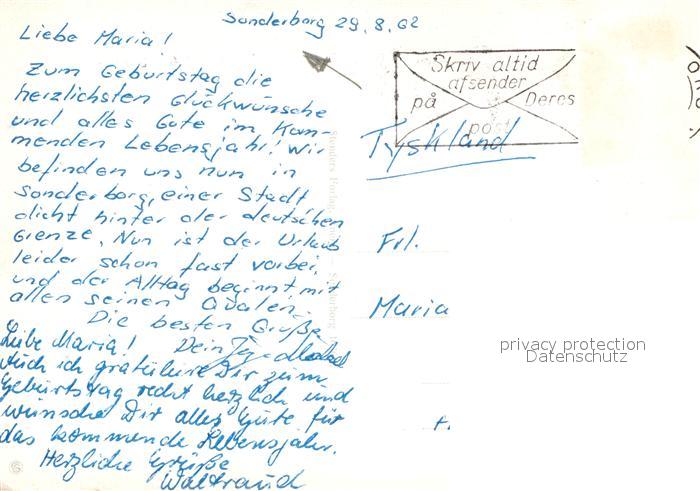 Sonderborg 29.8.62
Liebe Maria!
Zum Geburtstag die
herzlichsten Glückwünsche
und alles Gute im kom-
menden Lebensjahr! Wir
befinden uns nun in
Sonderborg, einer Stadt
dicht hinter der deutschen
Grenze. Nun ist der Urlaub
leider schon fast vorbei,
und der Alltag beginnt mit
allen seinen Qualen.
Die besten Grüße
Dein
Liebe Maria!
Auch ich gratuliere Dir zum
Geburtstag recht herzlich und
wünsche Dir alles Gute für
das kommende Lebensjahr.
Herzliche Grüße
Waltraud
Skriv altid
afsender
på Deres
post
Tyskland
Frl.
Maria
privacy protection
Datenschutz